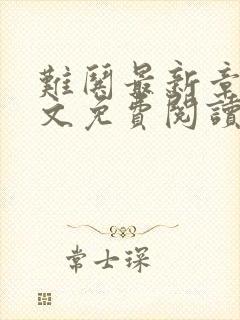 難關最新章
文免費閱讀
常士琛